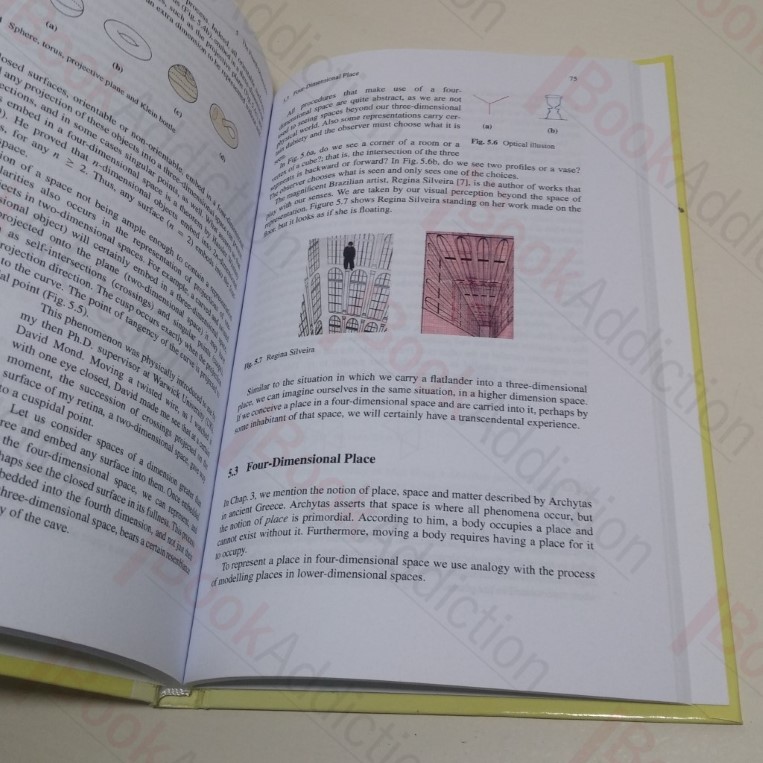 (a)
(b)
(c)
(d)
Sphere, torus, projective plane and Klein bottle
closed surfaces, orientable or non-orientable
any projection of these objects into a three-dimensional
ections, and in some cases, singular points, as well.
embed in a four-dimensional space is a theorem by
). He proved that n-dimensional objects embed
s, for any n ≥ 2. Thus, any surface (n = 2) embeds
space.
ion of a space not being ample enough to contain a
larities also occurs in the representation of
jects in two-dimensional spaces. For example, a curved
sional object) will certainly embed in a three-dimensional
projected onto the plane (two-dimensional space)
as self-intersections (crossings) and
rojection direction. The cusp occurs exactly when the
to the curve. The point of tangency of the curve
al point (Fig. 5.5).
This phenomenon was physically introduced
my then Ph.D. supervisor at Warwick University
David Mond. Moving a twisted wire, as I
with one eye closed, David made me see that at a certain
moment, the succession of crossings projected on the
surface of my retina, a two-dimensional space, gave
to a cuspidal point.
Let us consider spaces of a dimension greater than
ree and embed any surface into them. Once
the four-dimensional space, we can represent, and
haps see the closed surface in its fullness. This process
bedded into the fourth dimension, and not just
hree-dimensional space, bears a certain resemblance
y of the cave.
5.3 Four-Dimensional Place
75
All procedures that make use of a four-
dimensional space are quite abstract, as we are not
used to seeing spaces beyond our three-dimensional
physical world. Also some representations carry cer-
tain dubiety and the observer must choose what it is
(a)
(b)
Fig. 5.6 Optical illusion
In Fig. 5.6a, do we see a corner of a room or a
vertex of a cube?; that is, the intersection of the three
segments is backward or forward? In Fig. 5.6b, do we see two profiles or a vase?
The observer chooses what is seen and only sees one of the choices.
The magnificent Brazilian artist, Regina Silveira [7], is the author of works that
play with our senses. We are taken by our visual perception beyond the space of
representation. Figure 5.7 shows Regina Silveira standing on her work made on the
floor, but it looks as if she is floating.
Fig. 5.7 Regina Silveira
Similar to the situation in which we carry a flatlander into a three-dimensional
place, we can imagine ourselves in the same situation, in a higher dimension space.
If we conceive a place in a four-dimensional space and are carried into it, perhaps by
some inhabitant of that space, we will certainly have a transcendental experience.
5.3 Four-Dimensional Place
In Chap. 3, we mention the notion of place, space and matter described by Archytas
in ancient Greece. Archytas asserts that space is where all phenomena occur, but
the notion of place is primordial. According to him, a body occupies a place and
cannot exist without it. Furthermore, moving a body requires having a place for it
to occupy.
To represent a place in four-dimensional space we use analogy with the process
of modelling places in lower-dimensional spaces.
BookAddiction